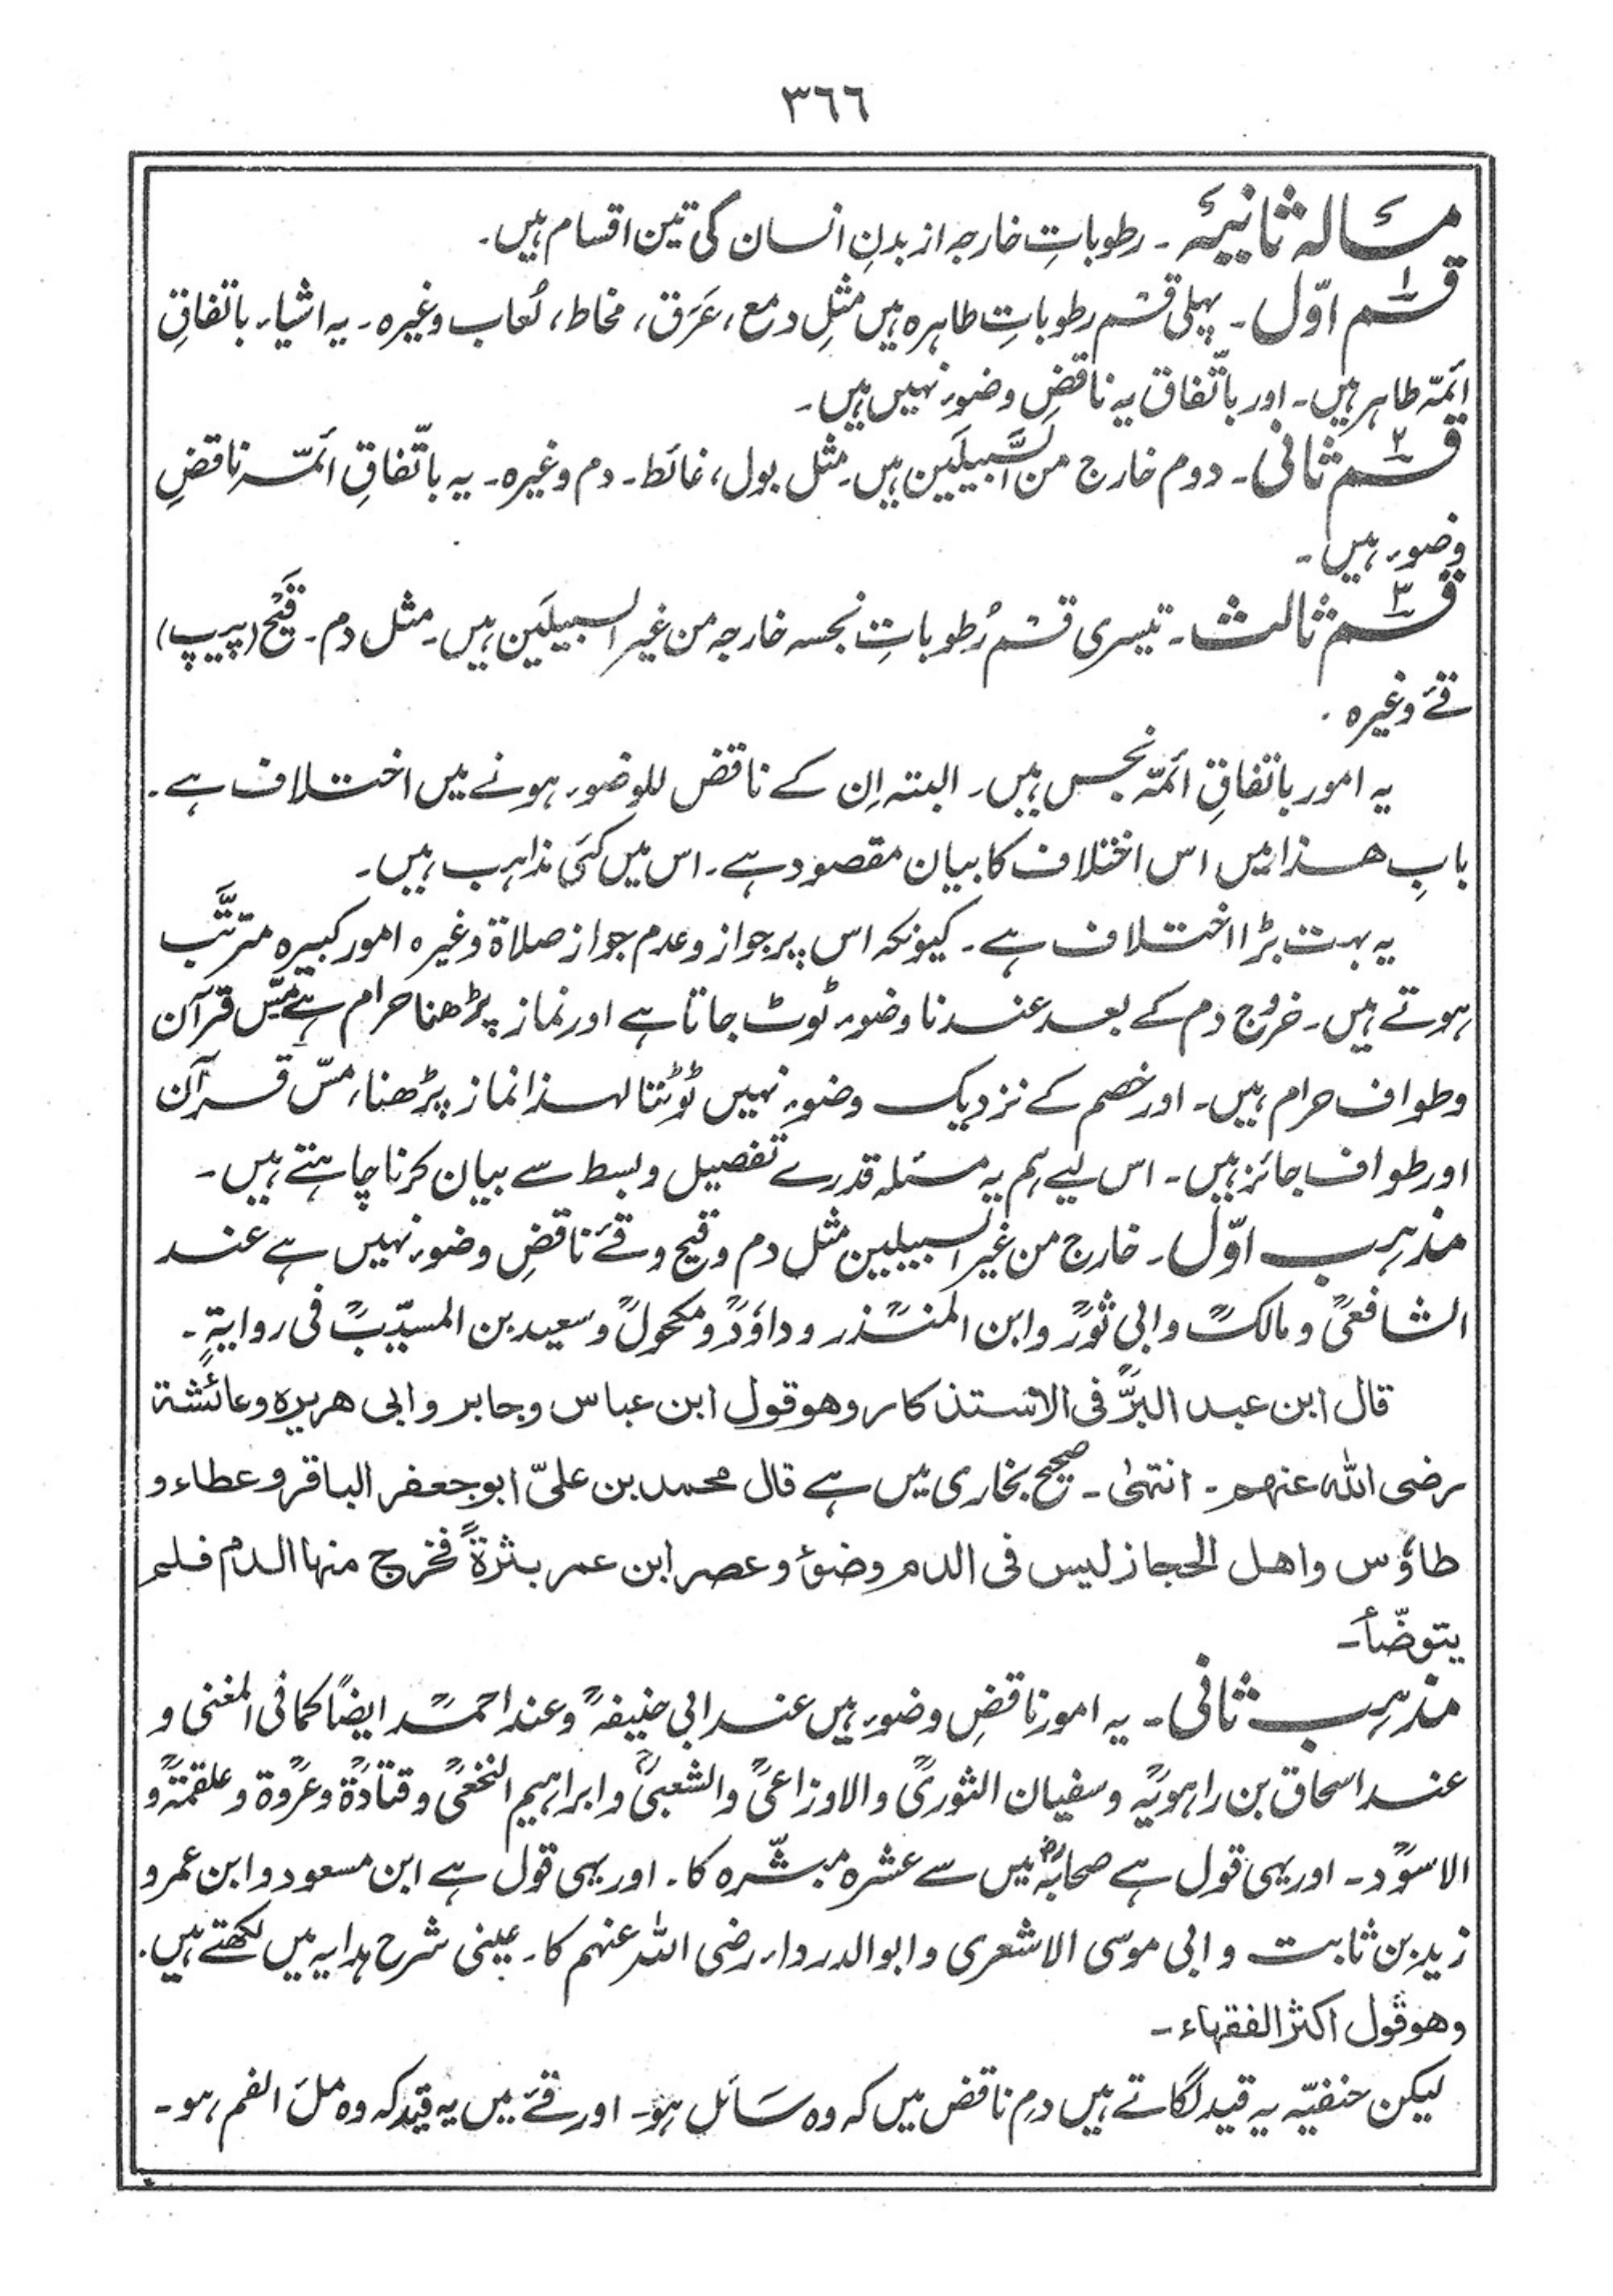 ٣٦٦
مسألہ ثانیہ ۔ رطوباتِ خارجہ از بدنِ انسان کی تین اقسام ہیں۔
قسم اوّل ۔ پہلی قسم رطوباتِ طاہرہ ہیں مثلِ دمع، عَرَق، مخاط، لُعاب وغیرہ۔ یہ اشیاء باتفاقِ
ائمّہ طاہر ہیں۔ اور باتّفاق یہ ناقضِ وضوء نہیں ہیں۔
قسم ثانی ۔ دوم خارج من السَّبِیلَین ہیں۔ مثل بول، غائط۔ دم وغیرہ۔ یہ باتّفاقِ ائمّہ ناقضِ
وضوء ہیں۔
قسم ثالث ۔ تیسری قسم رُطوباتِ نجسہ خارجہ من غیر السبیلَین ہیں۔ مثل دم۔ قَیْح (پیپ)
قئے وغیرہ ۔
یہ امور باتفاقِ ائمّہ نجس ہیں۔ البتہ اِن کے ناقض للوضوء ہونے میں اختلاف ہے۔
بابِ ھذا میں اس اختلاف کا بیان مقصود ہے۔ اس میں کئی مذاہب ہیں۔
یہ بہت بڑا اختلاف ہے۔ کیونکہ اس پر جواز و عدم جواز صلاۃ وغیرہ امور کبیرہ مترتَّب
ہوتے ہیں۔ خروج دم کے بعد عندنا وضوء ٹوٹ جاتا ہے اور نماز پڑھنا حرام ہے مسِّ قرآن
و طواف حرام ہیں۔ اور خصم کے نزدیک وضوء نہیں ٹوٹتا لہذا نماز پڑھنا، مسّ قرآن
اور طواف جائز ہیں۔ اس لیے ہم یہ مسئلہ قدرے تفصیل و بسط سے بیان کرنا چاہتے ہیں۔
مذہب اوّل ۔ خارج من غیر السبیلین مثل دم و قیح و قئے ناقضِ وضوء نہیں ہے عند
الشافعیؒ و مالکؒ و ابی ثورؒ و ابن المنذرؒ و داؤدؒ و مکحولؒ و سعید بن المسیّبؒ فی روایۃٍ ۔
قال ابن عبد البرؒ فی الاستذکار وھو قول ابن عباس وجابر وابی ھریرہ وعائشۃ
رضی اللہ عنہم۔ انتہیٰ ۔ صحیح بخاری میں ہے قال محمد بن علیّ ابو جعفر الباقر وعطاء و
طاؤس واھل الحجاز لیس فی الدم وضوءٌ وعصر ابن عمر بثرةً فخرج منہا الدم فلم
یتوضّأ۔
مذہب ثانی ۔ یہ امور ناقضِ وضوء ہیں عند ابی حنیفہؒ و عند احمدؒ ایضاً کما فی المغنی و
عند اسحاق بن راہویہؒ و سفیان الثوریؒ و الاوزاعیؒ و الشعبیؒ و ابراہیم النخعیؒ و قتادۃؒ و عروۃؒ و علقمۃؒ و
الاسودؒ۔ اور یہی قول ہے صحابہؓ میں سے عشرہ مبشّرہ کا۔ اور یہی قول ہے ابن مسعود و ابن عمر و
زید بن ثابت و ابی موسی الاشعری و ابو الدرداء رضی اللہ عنہم کا۔ عینی شرح ہدایہ میں لکھتے ہیں۔
وھو قول اکثر الفقہاء۔
لیکن حنفیّہ یہ قید لگاتے ہیں دمِ ناقض میں کہ وہ سَائل ہو۔ اور قئے میں یہ قید کہ وہ ملَ الفم ہو۔